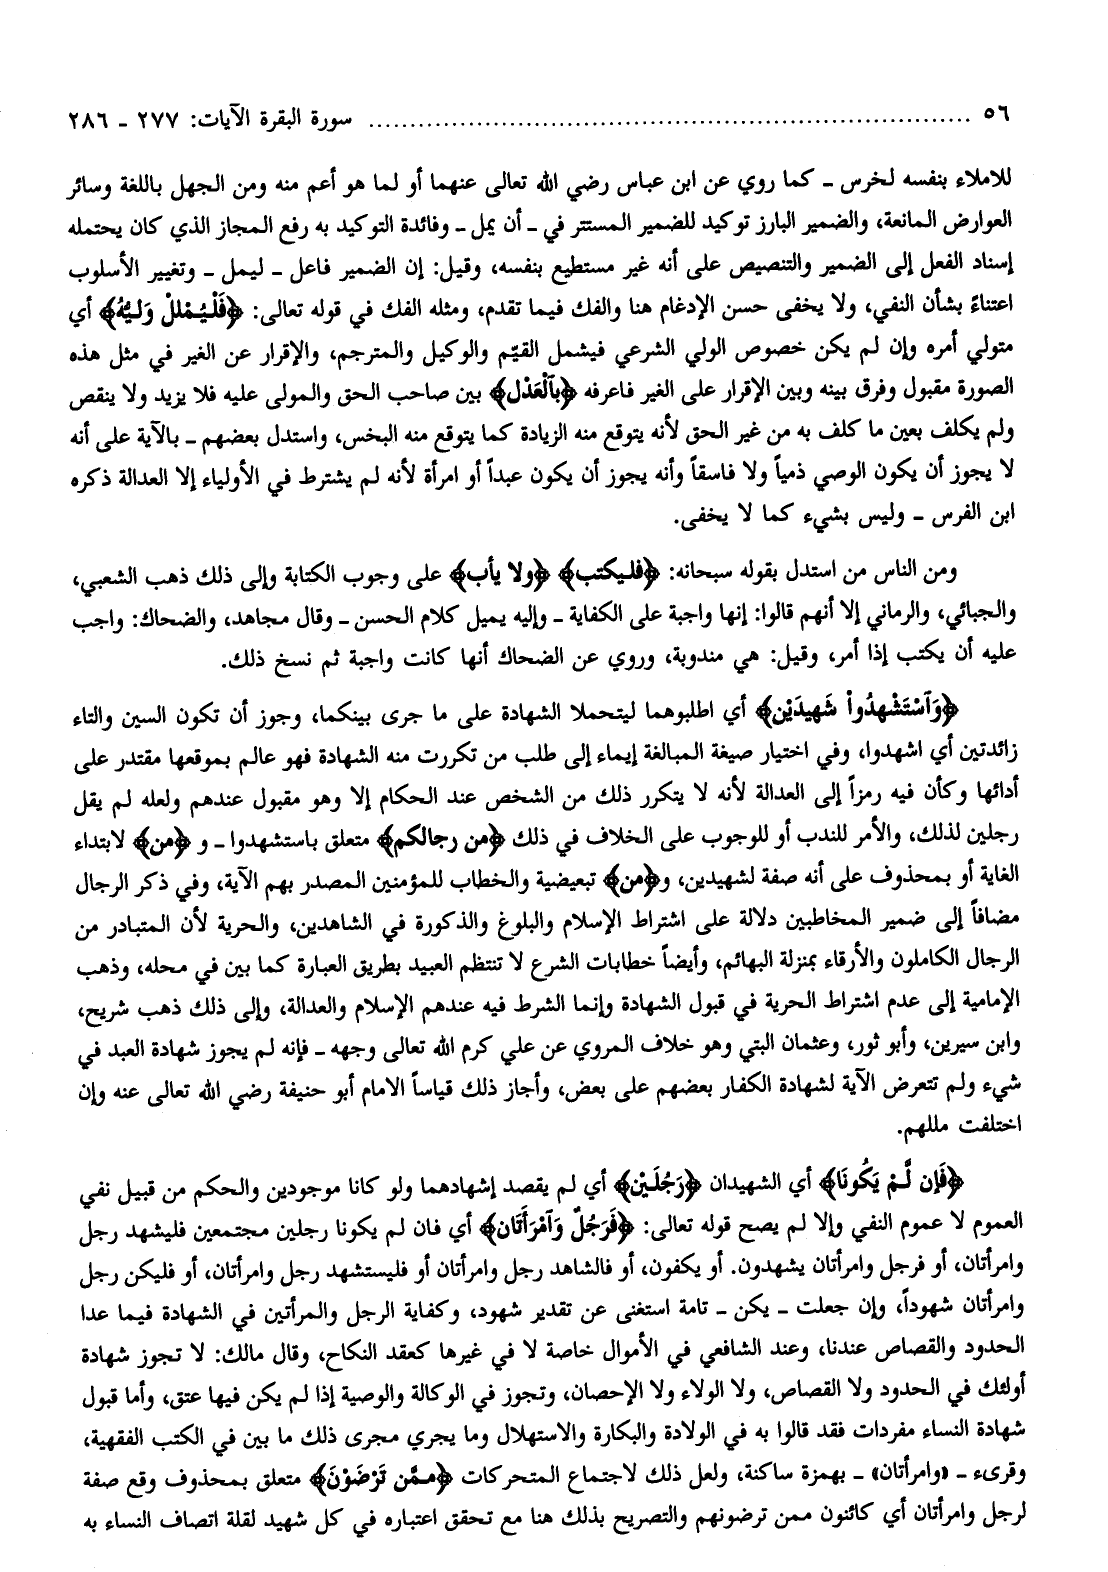 ٥٦ ........................................................................ سورة البقرة الآيات: ٢٧٧ ـ ٢٨٦
للاملاء بنفسه لخرس ـ كما روي عن ابن عباس رضي الله تعالى عنهما أو لما هو أعم منه ومن الجهل باللغة وسائر
العوارض المانعة، والضمير البارز توكيد للضمير المستتر في ـ أن يمل ـ وفائدة التوكيد به رفع المجاز الذي كان يحتمله
إسناد الفعل إلى الضمير والتنصيص على أنه غير مستطيع بنفسه، وقيل: إن الضمير فاعل ـ ليمل ـ وتغيير الأسلوب
اعتناءً بشأن النفي، ولا يخفى حسن الإدغام هنا والفك فيما تقدم، ومثله الفك في قوله تعالى: ﴿فَلْيُمْلِلْ وَلِيُّهُ﴾ أي
متولي أمره وإن لم يكن خصوص الولي الشرعي فيشمل القيّم والوكيل والمترجم، والإقرار عن الغير في مثل هذه
الصورة مقبول وفرق بينه وبين الإقرار على الغير فاعرفه ﴿بِٱلْعَدْلِ﴾ بين صاحب الحق والمولى عليه فلا يزيد ولا ينقص
ولم يكلف بعين ما كلف به من غير الحق لأنه يتوقع منه الزيادة كما يتوقع منه البخس، واستدل بعضهم ـ بالآية على أنه
لا يجوز أن يكون الوصي ذمياً ولا فاسقاً وأنه يجوز أن يكون عبداً أو امرأة لأنه لم يشترط في الأولياء إلا العدالة ذكره
ابن الفرس ـ وليس بشيء كما لا يخفى.
ومن الناس من استدل بقوله سبحانه: ﴿فليكتب﴾ ﴿ولا يأب﴾ على وجوب الكتابة وإلى ذلك ذهب الشعبي،
والجبائي، والرماني إلا أنهم قالوا: إنها واجبة على الكفاية ـ وإليه يميل كلام الحسن ـ وقال مجاهد، والضحاك: واجب
عليه أن يكتب إذا أمر، وقيل: هي مندوبة، وروي عن الضحاك أنها كانت واجبة ثم نسخ ذلك.
﴿وَٱسْتَشْهِدُواْ شَهِيدَيْنِ﴾ أي اطلبوهما ليتحملا الشهادة على ما جرى بينكما، وجوز أن تكون السين والتاء
زائدتين أي اشهدوا، وفي اختيار صيغة المبالغة إيماء إلى طلب من تكررت منه الشهادة فهو عالم بموقعها مقتدر على
أدائها وكأن فيه رمزاً إلى العدالة لأنه لا يتكرر ذلك من الشخص عند الحكام إلا وهو مقبول عندهم ولعله لم يقل
رجلين لذلك، والأمر للندب أو للوجوب على الخلاف في ذلك ﴿من رجالكم﴾ متعلق باستشهدوا ـ و ﴿من﴾ لابتداء
الغاية أو بمحذوف على أنه صفة لشهيدين، و﴿من﴾ تبعيضية والخطاب للمؤمنين المصدر بهم الآية، وفي ذكر الرجال
مضافاً إلى ضمير المخاطبين دلالة على اشتراط الإسلام والبلوغ والذكورة في الشاهدين، والحرية لأن المتبادر من
الرجال الكاملون والأرقاء بمنزلة البهائم، وأيضاً خطابات الشرع لا تنتظم العبيد بطريق العبارة كما بين في محله، وذهب
الإمامية إلى عدم اشتراط الحرية في قبول الشهادة وإنما الشرط فيه عندهم الإسلام والعدالة، وإلى ذلك ذهب شريح،
وابن سيرين، وأبو ثور، وعثمان البتي وهو خلاف المروي عن علي كرم الله تعالى وجهه ـ فإنه لم يجوز شهادة العبد في
شيء ولم تتعرض الآية لشهادة الكفار بعضهم على بعض، وأجاز ذلك قياساً الامام أبو حنيفة رضي الله تعالى عنه وإن
اختلفت مللهم.
﴿فَإِن لَّمْ يَكُونَا﴾ أي الشهيدان ﴿رَجُلَيْنِ﴾ أي لم يقصد إشهادهما ولو كانا موجودين والحكم من قبيل نفي
العموم لا عموم النفي وإلا لم يصح قوله تعالى: ﴿فَرَجُلٌ وَٱمْرَأَتَانِ﴾ أي فان لم يكونا رجلين مجتمعين فليشهد رجل
وامرأتان، أو فرجل وامرأتان يشهدون. أو يكفون، أو فالشاهد رجل وامرأتان أو فليستشهد رجل وامرأتان، أو فليكن رجل
وامرأتان شهوداً، وإن جعلت ـ يكن ـ تامة استغنى عن تقدير شهود، وكفاية الرجل والمرأتين في الشهادة فيما عدا
الحدود والقصاص عندنا، وعند الشافعي في الأموال خاصة لا في غيرها كعقد النكاح، وقال مالك: لا تجوز شهادة
أولئك في الحدود ولا القصاص، ولا الولاء ولا الإحصان، وتجوز في الوكالة والوصية إذا لم يكن فيها عتق، وأما قبول
شهادة النساء مفردات فقد قالوا به في الولادة والبكارة والاستهلال وما يجري مجرى ذلك ما بين في الكتب الفقهية،
وقرىء ـ «وامرأتان» ـ بهمزة ساكنة، ولعل ذلك لاجتماع المتحركات ﴿مِمَّن تَرْضَوْنَ﴾ متعلق بمحذوف وقع صفة
لرجل وامرأتان أي كائنون ممن ترضونهم والتصريح بذلك هنا مع تحقق اعتباره في كل شهيد لقلة اتصاف النساء به